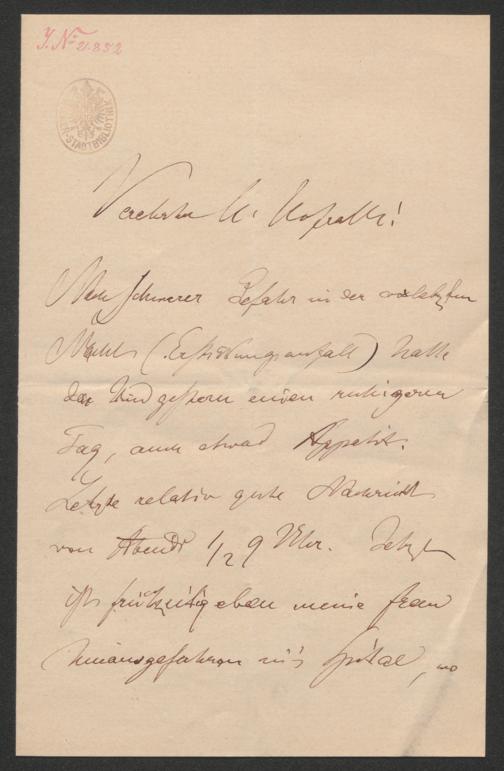 J. N. 21.852
STADTBIBLIOTHEK
Verehrter H. Hofrath!
Nach schwerer Gefahr in der vorletzten
Nacht (Erstickungsanfall) hatte
das Kind gestern einen ruhigeren
Tag, auch etwas Appetit.
Letzte relativ gute Nachricht
von Abends 1/2 9 Uhr. Jetzt
ist frühzeitig eben meine Frau
hinausgefahren in's Spital, wo